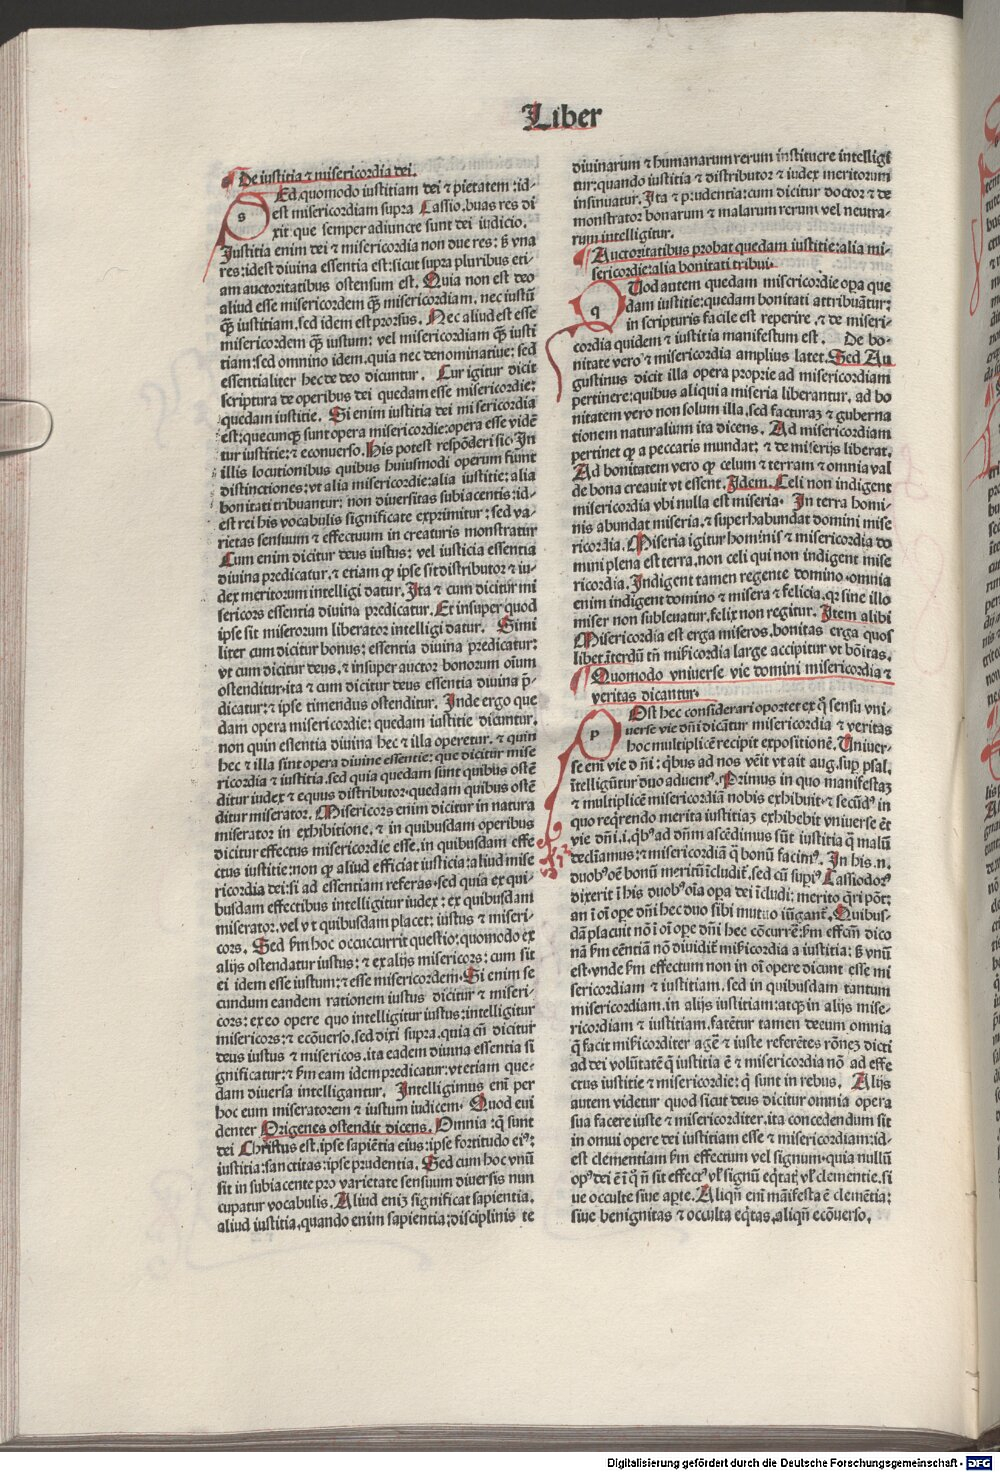 Liber
De iustitia ⁊ misericordia dei.
SEd quomodo iustitiam dei ⁊ pietatem: id-
est misericordiam supra Cassio. duas res di
xit: que semper adiuncte sunt dei iudicio.
Justitia enim dei ⁊ misericordia non due res: ß vna
res: idest diuina essentia est: sicut supra pluribus eti-
am auctoritatibus ostensum est. Quia non est deo
aliud esse misericordem q̃ȝ misericordiam, nec iustũ
q̃ȝ iustitiam, sed idem est prorsus. Nec aliud est esse
misericordem q̃ȝ iustum: vel misericordiam q̃ȝ iusti
tiam: sed omnino idem. quia nec denominatiue: sed
essentialiter hec de deo dicuntur. Cur igitur dicit
scriptura de operibus dei quedam esse misericordie:
quedam iustitie. Si enim iustitia dei misericordia
est: quecumqȝ sunt opera misericordie: opera esse vidẽ
tur iustitie: ⁊ econuerso. His potest respõderi sic. In
illis locutionibus quibus huiusmodi operum fiũnt
distinctiones: vt alia misericordie: alia iustitie: alia
bonitati tribuantur: non diuersitas subiacentis: id-
est rei his vocabulis significate exprimitur: sed va-
rietas sensuum ⁊ effectuum in creaturis monstratur
Cum enim dicitur deus iustus: vel iusticia essentia
diuina predicatur. ⁊ etiam qꝫ ipse sit distributor ⁊ iu-
dex meritorum intelligi datur. Ita ⁊ cum dicitur mi
sericors essentia diuina predicatur. Et insuper quod
ipse sit miserorum liberator intelligi datur. Simi
liter cum dicitur bonus: essentia diuina predicatur:
vt cum dicitur deus. ⁊ insuper auctor bonorum oĩum
ostenditur. ita ⁊ cum dicitur deus essentia diuina p̃-
dicatur: ⁊ ipse timendus ostenditur. Inde ergo que
dam opera misericordie: quedam iustitie dicuntur.
non quin essentia diuina hec ⁊ illa operetur. ⁊ quin
hec ⁊ illa sint opera diuine essentie: que dicitur mise
ricordia ⁊ iustitia. sed quia quedam sunt quibus ostẽ
ditur iudex ⁊ equus distributor. quedam quibus ostẽ
ditur miserator. Misericors enim dicitur in natura
miserator in exhibitione. ⁊ in quibusdam operibus
dicitur effectus misericordie esse. in quibusdam effe
ctus iustitie: non qꝫ aliud efficiat iusticia: aliud mise
ricordia dei: si ad essentiam referas. sed quia ex qui-
busdam effectibus intelligitur iudex: ex quibusdam
miserator. vel vt quibusdam placet: iustus ⁊ miseri-
cors. Sed ẜm hoc occuccurrit questio: quomodo ex
alijs ostendatur iustus: ⁊ ex alijs misericors: cum sit
ei idem esse iustum: ⁊ esse misericordem. Si enim se
cundum eandem rationem iustus dicitur ⁊ miseri-
cors: ex eo opere quo intelligitur iustus: intelligitur
misericors: ⁊ ecõuerso. sed dixi supra. quia cũ dicitur
deus iustus ⁊ misericos. ita eadem diuina essentia si
gnificatur: ⁊ ẜm eam idem predicatur: vt etiam que-
dam diuersa intelligantur. Intelligimus enĩ per
hoc eum miseratorem ⁊ iustum iudicem. Quod eui
denter Origenes ostendit dicens. Omnia: q̃ sunt
dei Christus est. ipse sapiẽtia eius: ipse fortitudo eiꝰ:
iustitia: sanctitas: ipse prudentia. Sed cum hoc vnũ
sit in subiacente pro varietate sensuum diuersis nun
cupatur vocabulis. Aliud eniȝ significat sapientia.
aliud iustitia. quando enim sapientia: disciplinis te
diuinarum ⁊ humanarum rerum ĩnstituere intelligi
tur: quando iustitia ⁊ distributor ⁊ iudex meritorum
insinuatur. Ita ⁊ prudentia: cum dicitur doctor ⁊ de
monstrator bonarum ⁊ malarum rerum vel neutra-
rum intelligitur.
Auctoritatibus probat quedam iustitie: alia mi-
sericordie: alia bonitati tribui.
qUod autem quedam misericordie opa que
dam iustitie: quedam bonitati attribuãtur:
in scripturis facile est reperire. ⁊ de miseri-
cordia quidem ⁊ iustitia manifestum est. De bo-
nitate vero ⁊ misericordia amplius latet. Sed Au
gustinus dicit illa opera proprie ad misericordiam
pertinere: quibus aliqui a miseria liberantur. ad bo
nitatem vero non solum illa, sed facturaȝ ⁊ guberna
tionem naturalium ita dicens. Ad misericordiam
pertinet qꝫ a peccatis mundat: ⁊ de miserijs liberat.
Ad bonitatem vero qꝫ celum ⁊ terram ⁊ omnia val
de bona creauit vt essent. Idem. Celi non indigent
misericordia vbi nulla est miseria. In terra homi-
nis abundat miseria. ⁊ superhabundat domini mise
ricordia. Miseria igitur hominis ⁊ misericordia do
mini plena est terra. non celi qui non indigent mise
ricordia. Indigent tamen regente domino. omnia
enim indigent domino ⁊ misera ⁊ felicia. qꝛ sine illo
miser non subleuatur. felix non regitur. Item alibi
Misericordia est erga miseros. bonitas erga quos
libet: ĩterdũ tñ mĩcordia large accipitur vt bõitas.
Quomodo vniuerse vie domini misericordia ⁊
veritas dicantur.
pOst hec considerari oportet ex q̃ sensu vni-
uerse vie dñi dicãtur misericordia ⁊ veritas
hoc multiplicẽ recipit expositionẽ. Uniuer-
se eni vie dñi: q̃bus ad nos vẽit vt ait aug. sup psal.
ĩtelligũtur duo aduentꝰ. Primus in quo manifestaȝ
⁊ multiplicẽ misericordiã nobis exhibuit. ⁊ secũdꝰ in
quo reqꝛendo merita iustitiaȝ exhibebit vniuerse ẽt
vie dñi. i. q̃bꝰ ad dñm ascẽdimus sũt iustitia q̃ malũ
declinamus: ⁊ misericordiã q̃ bonũ facimꝰ. In his. n.
duobꝰ oẽ bonũ meritũ ĩcludit̃. sed cũ supiꝰ Cassiodorꝰ
dixerit ĩ his duobꝰ oĩa opa dei ĩcludi: merito q̃ri põt:
an ĩ oĩ ope dñi hec duo sibi mutuo iũgant̃. Quibus-
dã placuit nõ ĩ oĩ ope dñi hec cõcurrẽ: ẜm effcm̃ dico
nã ẜm cẽntiã nõ diuidit̃ mĩcordia a iustitia: ß vnũ
est. vnde ẜm effectum non in oĩ opere dicunt esse mi
sericordiam ⁊ iustitiam. sed in quibusdam tantum
misericordiam. in alijs iustitiam: atqȝ in alijs mise-
ricordiam ⁊ iustitiam. fatẽtur tamen deeum omnia
q̃ facit mĩcorditer agẽ ⁊ iuste referẽtes rõneȝ dicti
ad dei volũtatẽ q̃ iustitia ẽ ⁊ misericordia nõ ad effe
ctus iustitie ⁊ misericordie: q̃ sunt in rebus. Alijs
autem videtur quod sicut deus dicitur omnia opera
sua facere iuste ⁊ misericorditer. ita concedendum sit
in omui opere dei iustitiam esse ⁊ misericordiam: id-
est clementiam ẜm effectum vel signum. quia nullũ
opꝰ dei ẽ ĩ q̃ ñ sit effectꝰ vl̃ signũ eq̃tat̃ vl̃ clementie. si
ue occulte siue apte. Aliqñ enĩ mãifesta ẽ clemẽtia:
siue benignitas ⁊ occulta eq̃tas. aliqñ ecõuerso.
Digitalisierung gefördert durch die Deutsche Forschungsgemeinschaft - DFG